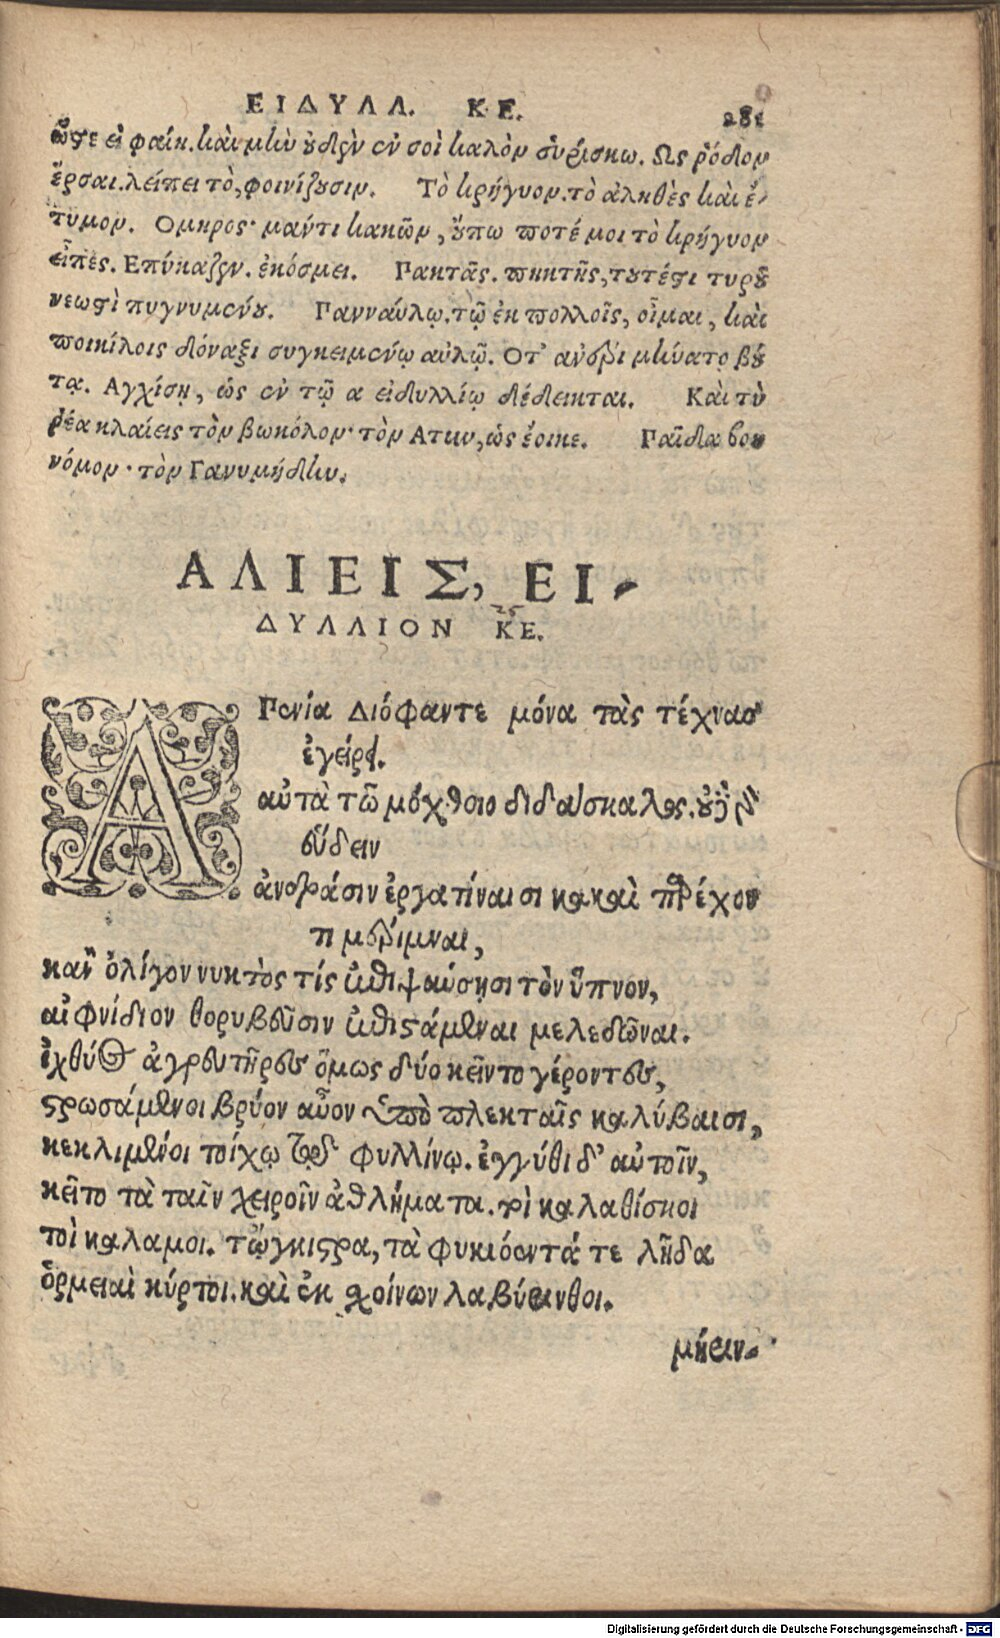 ΕΙΔΥΛΛ. ΚΕ. 281
ὥστε εἰ φαίη. καὶ μὴν οὐδὲν ἐν σοὶ καλὸν εὑρίσκω. Ως ῥόδον
ἔρσαι. λείπει τὸ, φοινίζουσιν. Τὸ κρήγυον. τὸ ἀληθὲς καὶ ἔ-
τυμον. Ομηρος· μάντι κακῶν, οὔπω ποτέ μοι τὸ κρήγυον
εἶπες. Επύκαζεν. ἐκόσμει. Πακτᾶς. πηκτῆς, τουτέστι τυροῦ
νεωστὶ πυγνυμένου. Γανναύλῳ. τῷ ἐκ πολλοῖς, οἶμαι, καὶ
ποικίλοις δόναξι συγκειμένῳ αὐλῷ. Οτ' ἀνέρι μὴνατο βού
τᾳ. Αγχίσῃ, ὡς ἐν τῷ α εἰδυλλίῳ δέδεικται. Καὶ τὺ
ῥέα κλαίεις τὸν βωκόλον· τὸν Ατην, ὡς ἔοικε. Παῖδα βου
νόμον· τὸν Γανυμήδην.
ΑΛΙΕΙΣ, ΕΙ-
ΔΥΛΛΙΟΝ ΚΕ.
25
Α Πενία Διόφαντε μόνα τὰς τέχνας
ἐγείρει.
αὐτὰ τῶ μόχθοιο διδάσκαλος. οὐδὲ γὰρ
εὕδειν
ἀνδράσιν ἐργατίναισι κακαὶ παρέχον
τι μέριμναι,
κἂν ὀλίγον νυκτὸς τίς ἐπιψαύσησι τὸν ὕπνον,
αἰφνίδιον θορυβεῦσιν ἐπιστάμεναι μελεδῶναι.
ἰχθύος ἀγρευτῆρες ὅμως δύο κεῖντο γέροντες,
στρωσάμενοι βρύον αὖον ὑπὸ πλεκταῖς καλύβαισι,
κεκλιμένοι τοίχῳ τῷδε φυλλίνῳ. ἐγγύθι δ' αὐτοῖν,
κεῖτο τὰ ταῖν χειροῖν ἀθλήματα. τοὶ καλαθίσκοι
τοὶ καλαμοι. τὤγκιστρα, τὰ φυκιόεντά τε λῆδα
ὅρμειαὶ κύρτοι. καὶ ἐκ σχοίνων λαβύρινθοι.
μήριν-
Digitalisierung gefördert durch die Deutsche Forschungsgemeinschaft - DFG